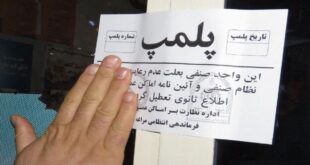 تاریخ پلمپ
شماره پلمپ
پلمپ
این واحد صنفی بعلت عدم رعایت
نظام صنفی و آئین نامه اماکن
اطلاع ثانوی تعطیل
اداره نظارت بر اماکن
فرماندهی انتظامی